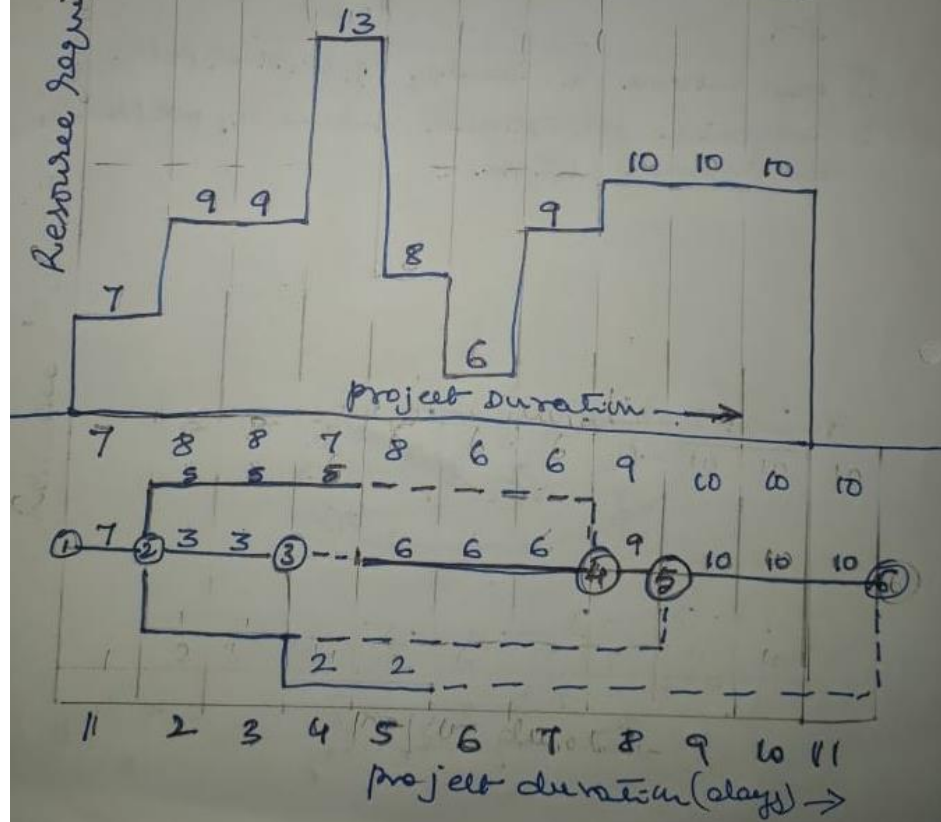 13
Resource requi
10 10 10
9 9
9
8
7
6
project Duration
7 8 8 7 8 6 6 9 10 10 10
5 5 5
1 7 2 3 3 3 6 6 6 4 9 5 10 10 10 6
2 2
1 2 3 4 5 6 7 8 9 10 11
project duration (days)